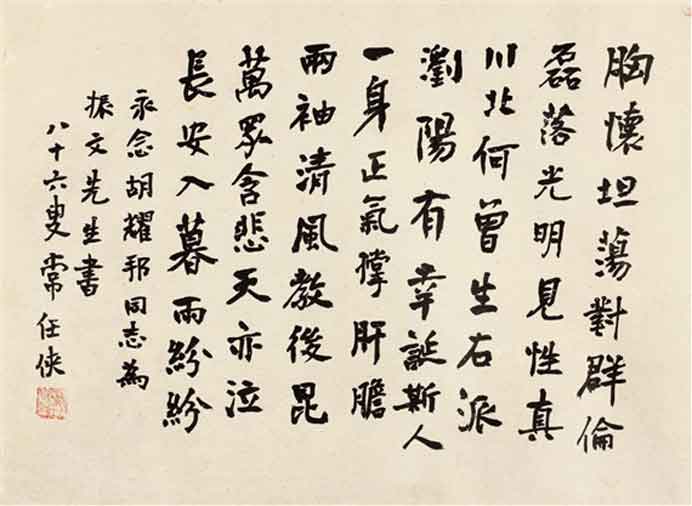 胸懷坦蕩對群倫
磊落光明見性真
川北何曾生右派
瀏陽有幸誕斯人
一身正氣撐肝膽
兩袖清風教後昆
萬眾含悲天亦泣
長安入暮雨紛紛
永念胡耀邦同志為
振文先生書
八十六叟常任俠